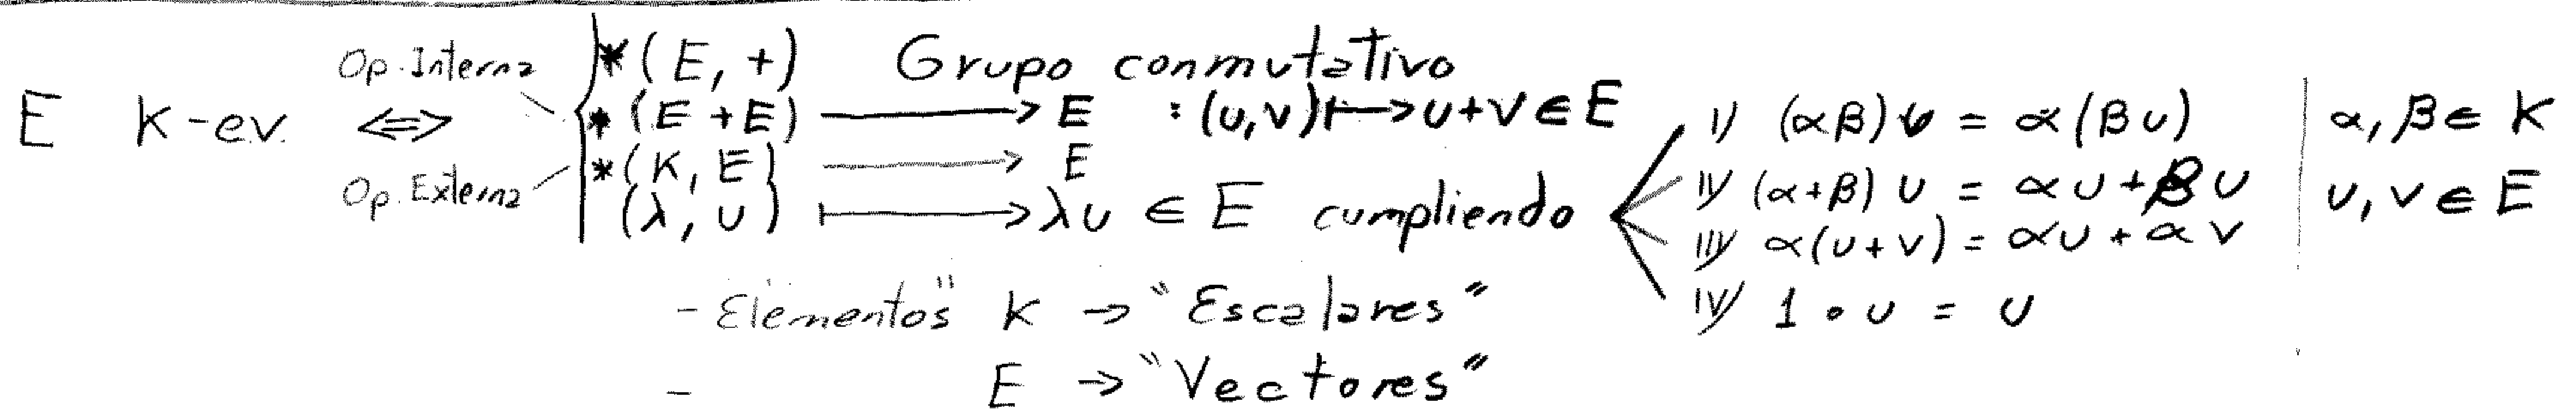 Op. Interna * (E, +) Grupo conmutativo
E K-ev. ⟺ * (E + E) ⟶ E : (u,v) ⟼ u+v ∈ E
Op. Externa * (K, E) ⟶ E
(λ, u) ⟼ λu ∈ E cumpliendo
i) (αβ)u = α(βu)
ii) (α+β) u = αu + βu
iii) α(u+v) = αu + αv
iv) 1 ∘ u = u
α, β ∈ K
u, v ∈ E
- Elementos" K → "Escalares"
- E → "Vectores"